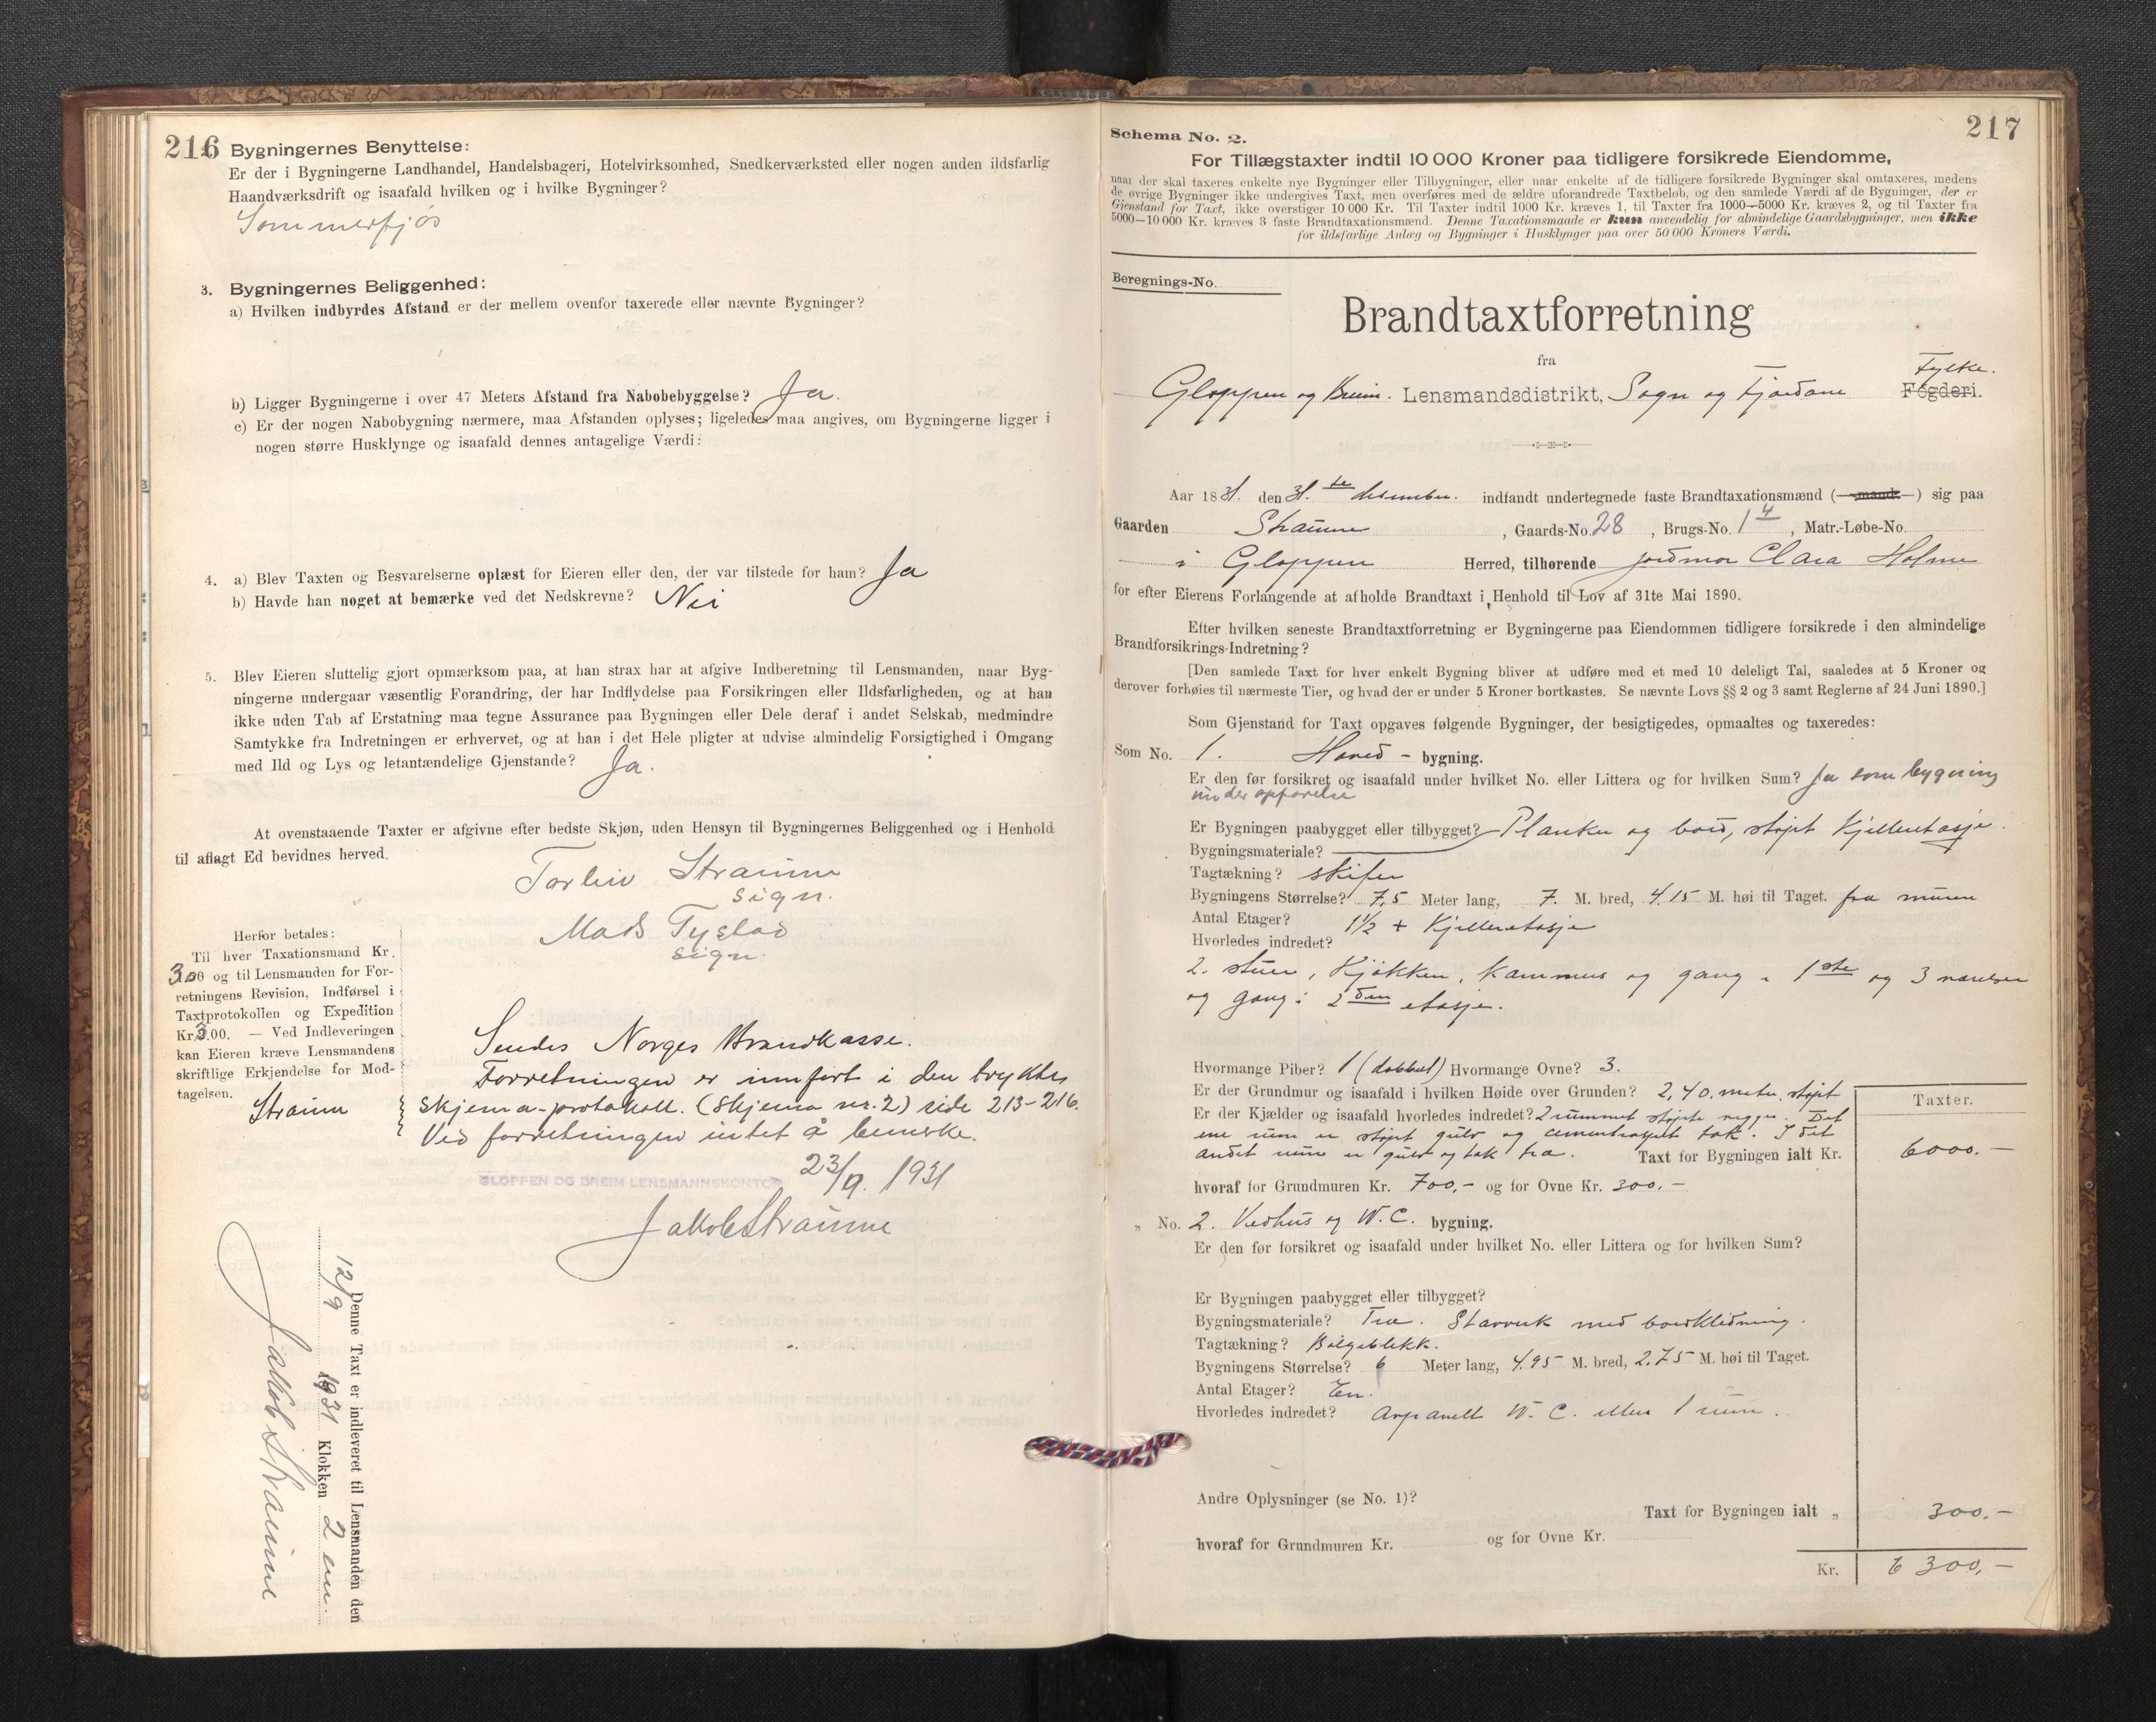 216
Bygningernes Benyttelse:
Er der i Bygningerne Landhandel, Handelsbageri, Hotelvirksomhed, Snedkerværksted eller nogen anden ildsfarlig
Haandværksdrift og isaafald hvilken og i hvilke Bygninger?
Sommerfjøs
3. Bygningernes Beliggenhed:
a) Hvilken indbyrdes Afstand er der mellem ovenfor taxerede eller nævnte Bygninger?
b) Ligger Bygningerne i over 47 Meters Afstand fra Nabobebyggelse? Ja.
c) Er der nogen Nabobygning nærmere, maa Afstanden oplyses; ligeledes maa angives, om Bygningerne ligger i
nogen større Husklynge og isaafald dennes antagelige Værdi:
4. a) Blev Taxten og Besvarelserne oplæst for Eieren eller den, der var tilstede for ham? Ja
b) Havde han noget at bemærke ved det Nedskrevne? Nei
5. Blev Eieren sluttelig gjort opmærksom paa, at han strax har at afgive Indberetning til Lensmanden, naar Byg-
ningerne undergaar væsentlig Forandring, der har Indflydelse paa Forsikringen eller Ildsfarligheden, og at han
ikke uden Tab af Erstatning maa tegne Assurance paa Bygningen eller Dele deraf i andet Selskab, medmindre
Samtykke fra Indretningen er erhvervet, og at han i det Hele pligter at udvise almindelig Forsigtighed i Omgang
med Ild og Lys og letantændelige Gjenstande? Ja.
At ovenstaaende Taxter er afgivne efter bedste Skjøn, uden Hensyn til Bygningernes Beliggenhed og i Henhold
til aflagt Ed bevidnes herved.
Torleiv Straume
sign.
Mads Tystad
sign.
Herfor betales:
Til hver Taxationsmand Kr.
3.00 og til Lensmanden for For-
retningens Revision, Indførsel i
Taxtprotokollen og Expedition
Kr. 3.00. — Ved Indleveringen
kan Eieren kræve Lensmandens
skriftlige Erkjendelse for Mod-
tagelsen.
Straume
Sendes Norges Brandkasse.
Forretningen er innført i den trykte
skjema-protokoll. (Skjema nr. 2) side 213-216.
Ved forretningen intet å bemerke.
23/9. 1931
GLOPPEN OG BREIM LENSMANNSKONTOR
Jakob Straume
Denne Taxt er indleveret til Lensmanden den
12/9 1931 Klokken 2 em.
Jakob Straume
217
Schema No. 2.
For Tillægstaxter indtil 10 000 Kroner paa tidligere forsikrede Eiendomme,
naar der skal taxeres enkelte nye Bygninger eller Tilbygninger, eller naar enkelte af de tidligere forsikrede Bygninger skal omtaxeres, medens
de øvrige Bygninger ikke undergives Taxt, men overføres med de ældre uforandrede Taxtbeløb, og den samlede Værdi af de Bygninger, der er
Gjenstand for Taxt, ikke overstiger 10 000 Kr. Til Taxter indtil 1000 Kr. kræves 1, til Taxter fra 1000—5000 Kr. kræves 2, og til Taxter fra
5000—10 000 Kr. kræves 3 faste Brandtaxationsmænd. Denne Taxationsmaade er kun anvendelig for almindelige Gaardsbygninger, men ikke
for ildsfarlige Anlæg og Bygninger i Husklynger paa over 50 000 Kroners Værdi.
Beregnings-No.
Brandtaxtforretning
fra
Gloppen og Breim. Lensmandsdistrikt, Sogn og Fjordane Fylke. Fogderi.
Aar 1831. den 31.te desember. indfandt undertegnede faste Brandtaxationsmænd (mand) sig paa
Gaarden Straume, Gaards-No. 28, Brugs-No. 14, Matr.-Løbe-No.
i Gloppen Herred, tilhørende jordmor Clara Holme
for efter Eierens Forlangende at afholde Brandtaxt i Henhold til Lov af 31te Mai 1890.
Efter hvilken seneste Brandtaxtforretning er Bygningerne paa Eiendommen tidligere forsikrede i den almindelige
Brandforsikrings-Indretning?
[Den samlede Taxt for hver enkelt Bygning bliver at udføre med et med 10 deleligt Tal, saaledes at 5 Kroner og
derover forhøies til nærmeste Tier, og hvad der er under 5 Kroner bortkastes. Se nævnte Lovs §§ 2 og 3 samt Reglerne af 24 Juni 1890.]
Som Gjenstand for Taxt opgaves følgende Bygninger, der besigtigedes, opmaaltes og taxeredes:
Som No. 1. Hoved - bygning.
Er den før forsikret og isaafald under hvilket No. eller Littera og for hvilken Sum? Ja som bygning
under opførelse
Er Bygningen paabygget eller tilbygget? Planker og bord, støpt Kjelleretasje.
Bygningsmateriale?
Tagtækning? skifer
Bygningens Størrelse? 7,5 Meter lang, 7. M. bred, 4.15 M. høi til Taget. fra muren
Antal Etager? 1½ + Kjelleretasje
Hvorledes indredet?
2. stuer, Kjøkken, kammers og gang i 1ste og 3 værelser
og gang i 2den etasje.
Hvormange Piber? 1 (dobbel) Hvormange Ovne? 3.
Er der Grundmur og isaafald i hvilken Høide over Grunden? 2,40. meter støpt
Er der Kjælder og isaafald hvorledes indredet? 2 rummet støpte vegger. Det
ene rum er støpt gulv og cementrappet tak. I det
andet rum er gulv og tak tra. Taxt for Bygningen ialt Kr.
Taxter.
6000.—
hvoraf for Grundmuren Kr. 700,- og for Ovne Kr. 300.-
„ No. 2. Vedhus og W.C. bygning.
Er den før forsikret og isaafald under hvilket No. eller Littera og for hvilken Sum?
Er Bygningen paabygget eller tilbygget?
Bygningsmateriale? Tre. Stavverk med bordkledning.
Tagtækning? Bølgeblikk.
Bygningens Størrelse? 6 Meter lang, 4.95 M. bred, 2.75 M. høi til Taget.
Antal Etager? En.
Hvorledes indredet? Avpanelt W.C. ellers 1 rum.
Andre Oplysninger (se No. 1)?
Taxt for Bygningen ialt „ 300.—
hvoraf for Grundmuren Kr. og for Ovne Kr.
Kr. 6300,—